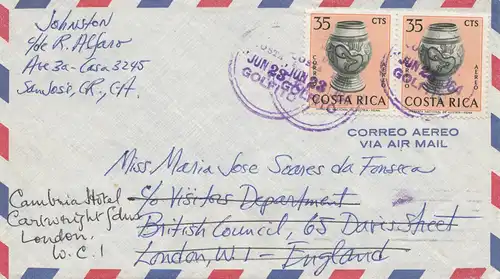 Johnston
c/o R. Alfaro
Ave 3a - Casa 3245
San José, CR, C.A.
35 CTS
CORREO AEREO
COSTA RICA
35 CTS
CORREO AEREO
COSTA RICA
JUN 23
GOLFITO
JUN 23
GOLFITO
JUN 23 64
GOLFITO
CORREO AEREO
VIA AIR MAIL
Miss Maria Jose Soares da Fonseca
c/o Visitors Department
British Council, 65 Davis Street
London, W.1 - England
Cambria Hotel
Cartwright Gdns
London.
W.C.1